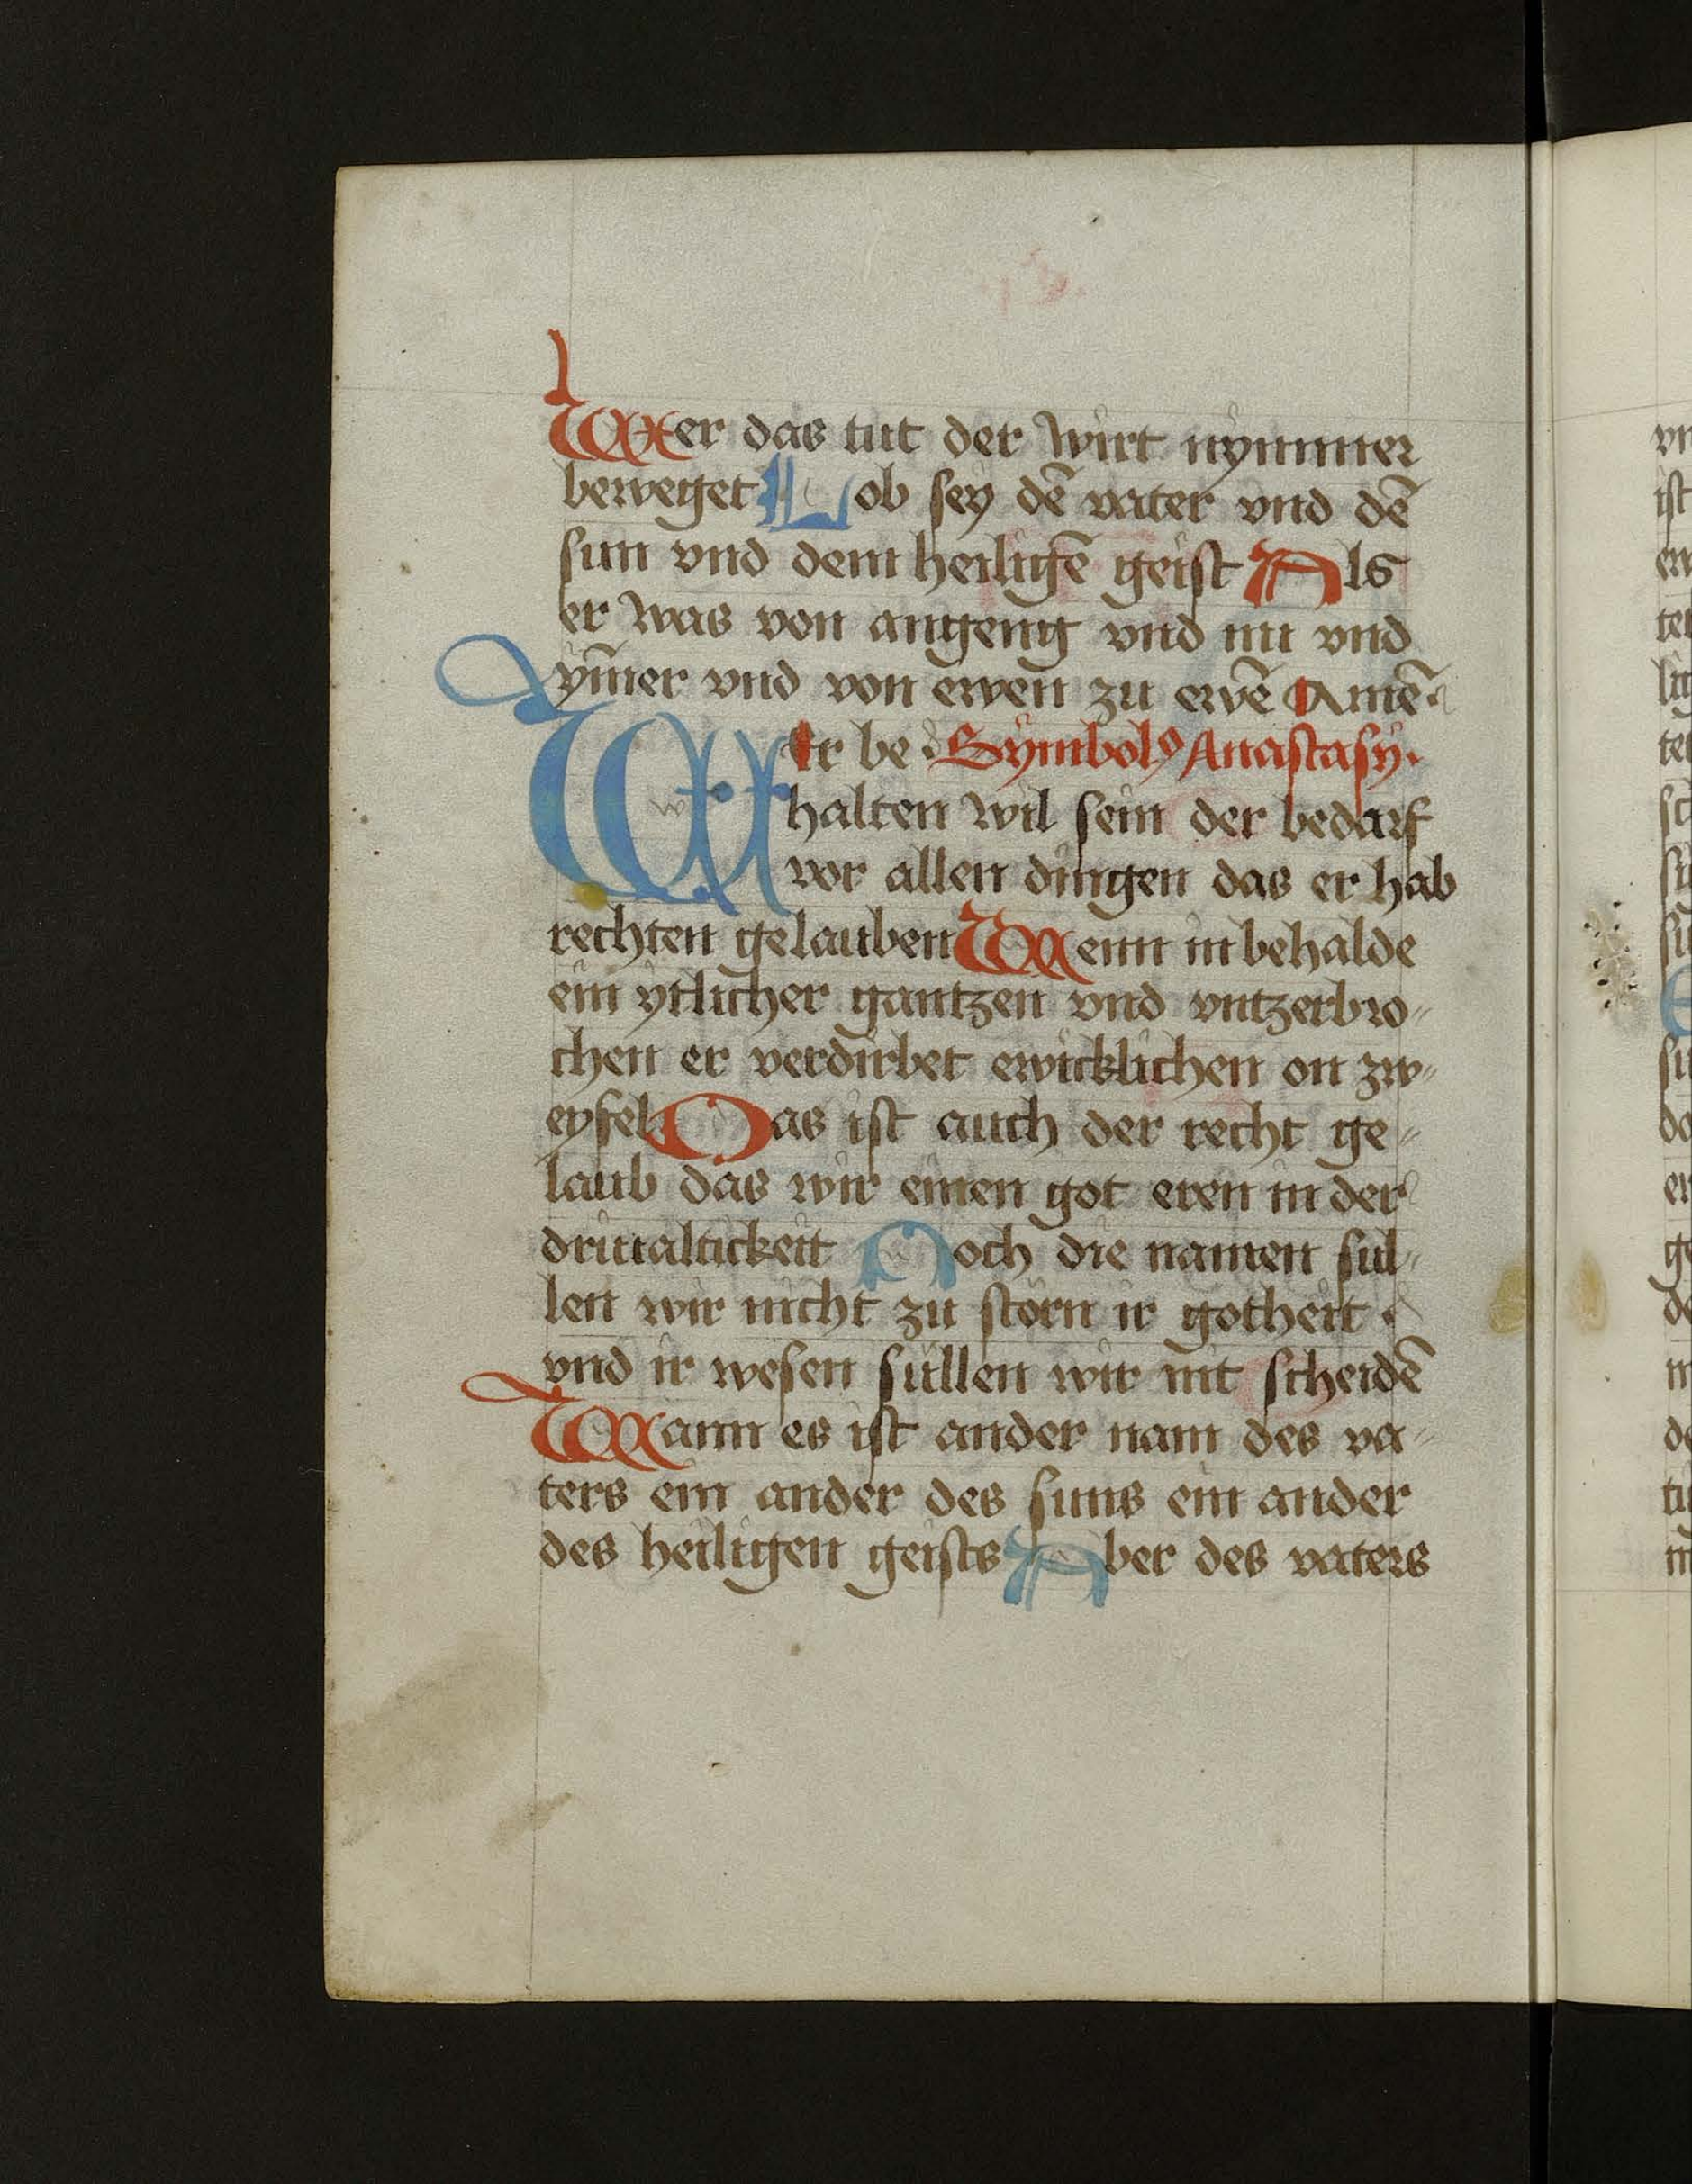 Wer das tut der wirt nymmer
beweget Lob sey dē vater vnd dē
sun vnd dem heiligē geist Als
er was von angeng vnd nu vnd
ym̄er vnd von ewen zu ewē Amē·
Er be· Symbolꝰ Anastasy·
halten wil sein der bedarf
vor allen dingen das er hab
rechten gelauben Wenn in behalde
ein ytlicher gantzen vnd vntzerbro„
chen er verdirbet ewicklichen on zw„
eyfel Das ist auch der recht ge„
laub das wir einen got eren in der
driualtickeit Noch die namen sul„
len wir nicht zu störn ir gotheit ·
vnd ir wesen sullen wir nit scheidē
Wann es ist ander nam des va„
ters ein ander des suns ein ander
des heiligen geists Aber des vaters